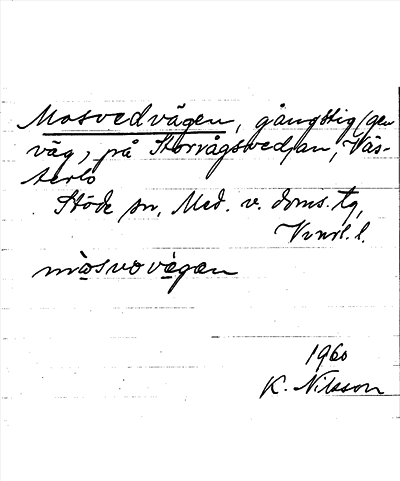 Mosvedvägen, gångstig (gen
väg, på Storvågsvedjan, Väs-
terlo
Stöde sn, Med. v. doms. tg,
Vvnrl. l.
mòsvovä̀gæn
1960
K. Nilsson